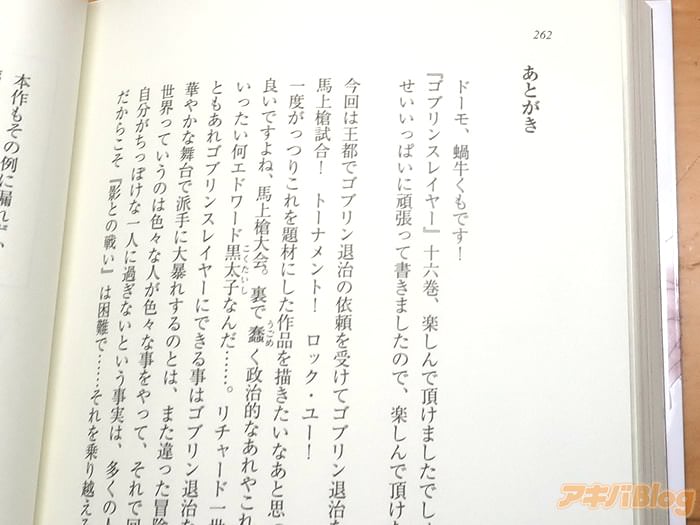 262
あとがき
ドーモ、蝸牛くもです！
『ゴブリンスレイヤー』十六巻、楽しんで頂けましたでし
せいいっぱいに頑張って書きましたので、楽しんで頂け
今回は王都でゴブリン退治の依頼を受けてゴブリン退治を
馬上槍試合！　トーナメント！　ロック・ユー！
一度がっつりこれを題材にした作品を描きたいなあと思っ
良いですよね、馬上槍大会。裏で蠢く政治的なあれやこ
うごめ
いったい何エドワード黒太子なんだ……。リチャード一世
こくたいし
ともあれゴブリンスレイヤーにできる事はゴブリン退治
華やかな舞台で派手に大暴れするのとは、また違った冒険
世界っていうのは色々な人が色々な事をやって、それで回
自分がちっぽけな一人に過ぎないという事実は、多くの人
だからこそ『影との戦い』は困難で……それを乗り越える
本作もその例に漏れず、
アキバBlog